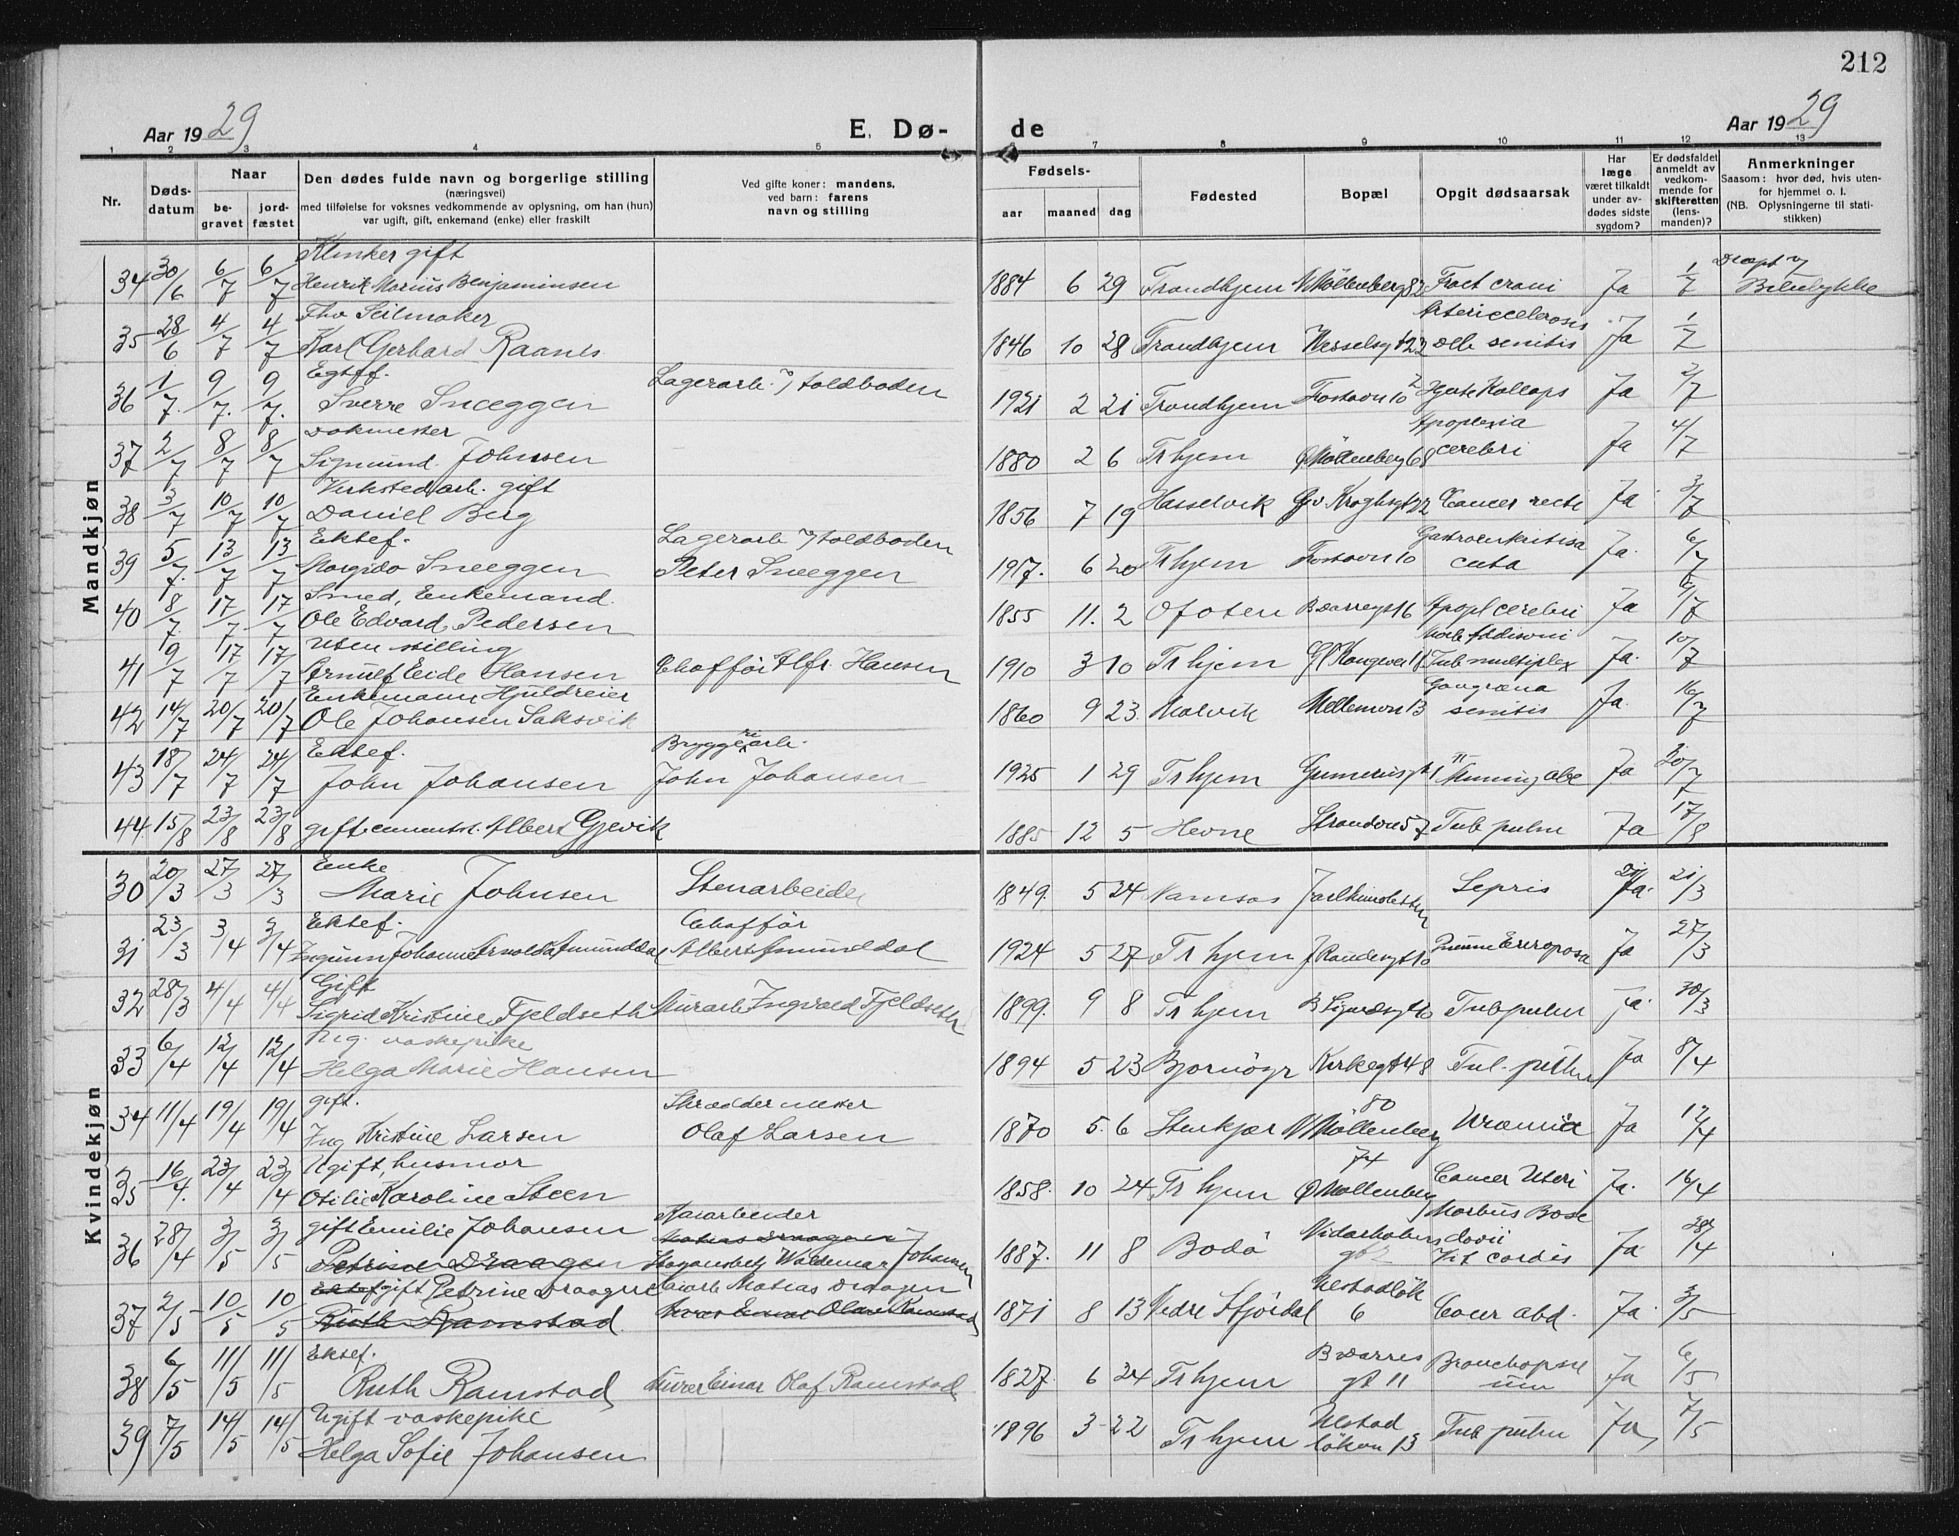 212
Aar 1929 E. Dø- de Aar 1929
1 2 3 4 5 6 7 8 9 10 11 12 13
Nr. Døds-datum Naar be-gravet jord-fæstet Den dødes fulde navn og borgerlige stilling (næringsvei) med tilføielse for voksnes vedkommende av oplysning, om han (hun) var ugift, gift, enkemand (enke) eller fraskilt Ved gifte koner: mandens, ved barn: farens navn og stilling Fødsels- aar maaned dag Fødested Bopæl Opgit dødsaarsak Har læge været tilkaldt under av-dødes sidste sygdom? Er dødsfaldet anmeldt av vedkom-mende for skifteretten (lens-manden)? Anmerkninger Saasom: hvor død, hvis uten-for hjemmet o. l. (NB. Oplysningerne til stati-stikken)
Mandkjøn
Klinker gift
34 30/6 6/7 6/7 Henrik Marius Benjaminsen 1884 6 29 Trondhjem Möllenberg 82 Fract crani Ja 1/7 Dræpt v/ Bilulykke
Fhv Seilmaker
35 28/6 4/7 4/7 Karl Gerhard Raanes 1846 10 28 Trondhjem Wesselsgt 22 senilis Ja 1/7
Egtef. Lagerarb. v/ toldboden
36 1/7. 9/7. 9/7. Sverre Sneeggen 1921 2 21 Trondhjem 10 Hjerte Kollaps Ja 2/7
37 2/7 8/7 8/7 Sigmund Johnsen 1880 2 6 Trhjem Ø Möllenberg 68 Apoplexia cerebri Ja 4/7
Verkstedarb. gift
38 3/7 10/7 10/7 Daniel Berg 1856 7 19 Hasselvik v Kroghsgt 22 Cancer recti Ja 3/7
Ektef. Lagerarb v/ toldboden
39 5/7. 13/7 13/7 Sneeggen Peter Sneeggen 1917. 6 20 Trhjem 10 Ja. 6/7
Smed, Enkemand.
40 8/7. 17/7 17/7 Ole Edvard Pedersen 1855 11. 2 Ofoten 16 Apopl cerebri Ja
Uten stilling
41 9/7 17/7 17/7 Arnulf Eide Hansen Chafför Alfr. Hansen 1910 3 10 Trhjem Gl Kongevei 18 Morb Addisoni Tub multiplex Ja. 10/7
Enkemann Hjuldreier
42 14/7 20/7 20/7 Ole Johansen Saksvik 1860 9 23 Malvik Mellemon 13 Gangræna senilis Ja. 16/7
Ektef. Bryggeriarb.
43 18/7 24/7 24/7 John Johansen John Johansen 1925 1 29 Trhjem Gumeriusgt 1 Ja 20/7
44. 15/8 23/8 23/8 gift Albert Gjevik 1885 12 5 Hevne Strandvei 57 Tub pulm Ja 17/8
Kvindekjøn
Enke
30 20/3 27/3 27/3 Marie Johnsen Stenarbeider 1849. 5 24 Namsos Sepsis Ja. 21/3
Ektef. Chafför
31 23/3 3/4 3/4 Ingunn Johanne Arnolda Amunddal Albert Amunddal 1924 5 27 Trhjem 10 Ja 27/3
Gift
32 28/3 4/4 4/4 Sigrid Kristine Fjeldseth Murarb Ingvald Fjeldseth 1899. 9 8 Trhjem B Sigurdsgt 10 Tub pulm Ja. 30/3
Ug. vaskepike
33 6/4 12/4 12/4 Helga Marie Hansen 1894 5 23 Bjornör Kirkegt 48 Tub. pulm Ja 8/4
gift. Skræddermester
34 11/4 19/4 19/4 Ing Kristine Larsen Olaf Larsen 1870 5. 6 Stenkjær Möllenberg 80 Uræmia Ja 12/4
Ugift, husmor
35 16/4. 23/4 23/4 Otilie Karoline Steen 1858. 10 24 Trhjem Ø Möllenberg 74 Cancer Uteri Ja. 16/4
36 28/4 3/5 3/5 gift Emilie Johansen Petrine Draagen Waldemar Johansen 1887. 11 8 Bodö Morbus Basedovii Vit cordis Ja
37 2/5 10/5 10/5 Ektef gift Petrine Draagen Ruth Ramstad Matias Draagen Einar Olav Ramstad 1871 8 13 Nedre Stjördal Ulstadlök 6 Cancer abd. Ja. 3/5
Ektef.
38 6/5 11/5 11/5 Ruth Ramstad Murer Einar Olaf Ramstad 1827. 6 24 Trhjem gt 11 Bronchopneum Ja 6/5
Ugift vaskepike
39 7/5 14/5 14/5 Helga Sofie Johansen 1896 3 22 Trhjem Ulstad löken 13 Tub pulm Ja 7/5